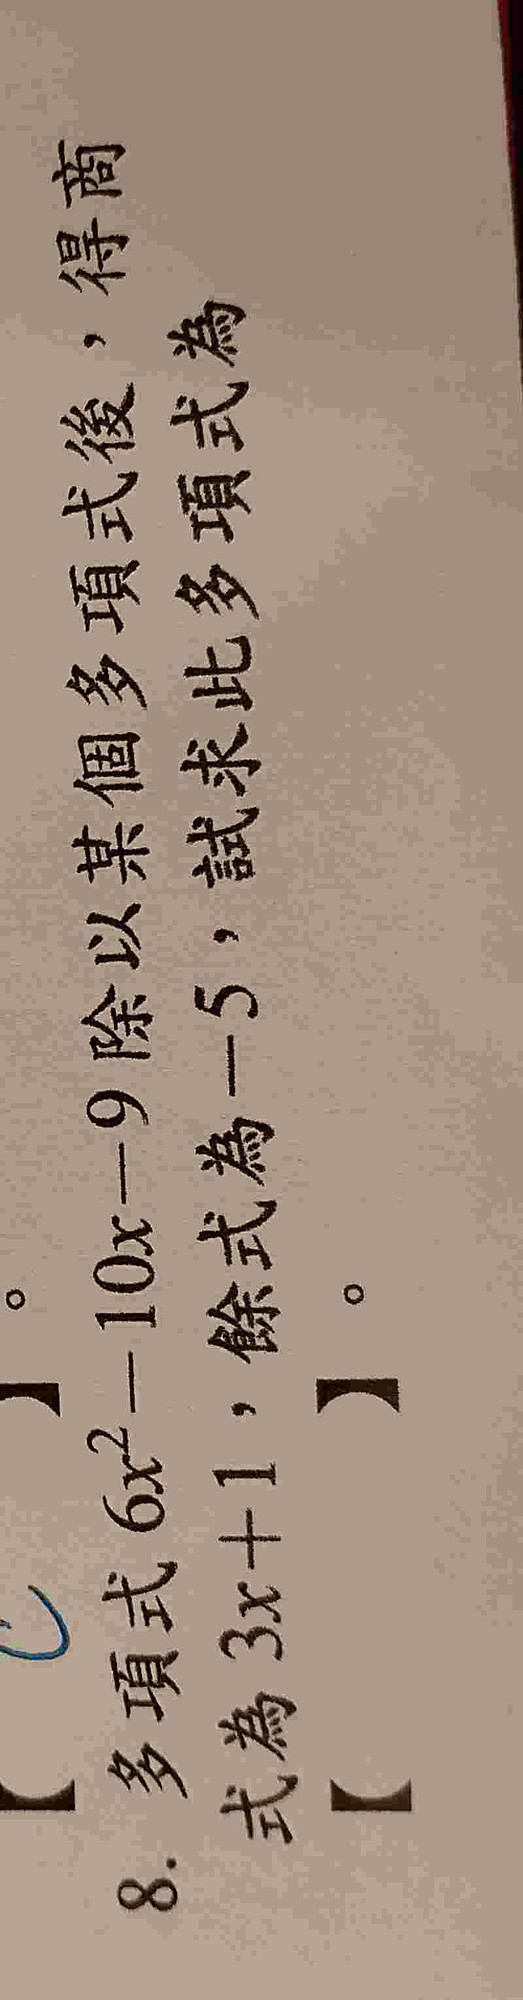 【 】。
8. 多項式 6x²－10x－9 除以某個多項式後，得商
式為 3x＋1，餘式為－5，試求此多項式為
【 】。